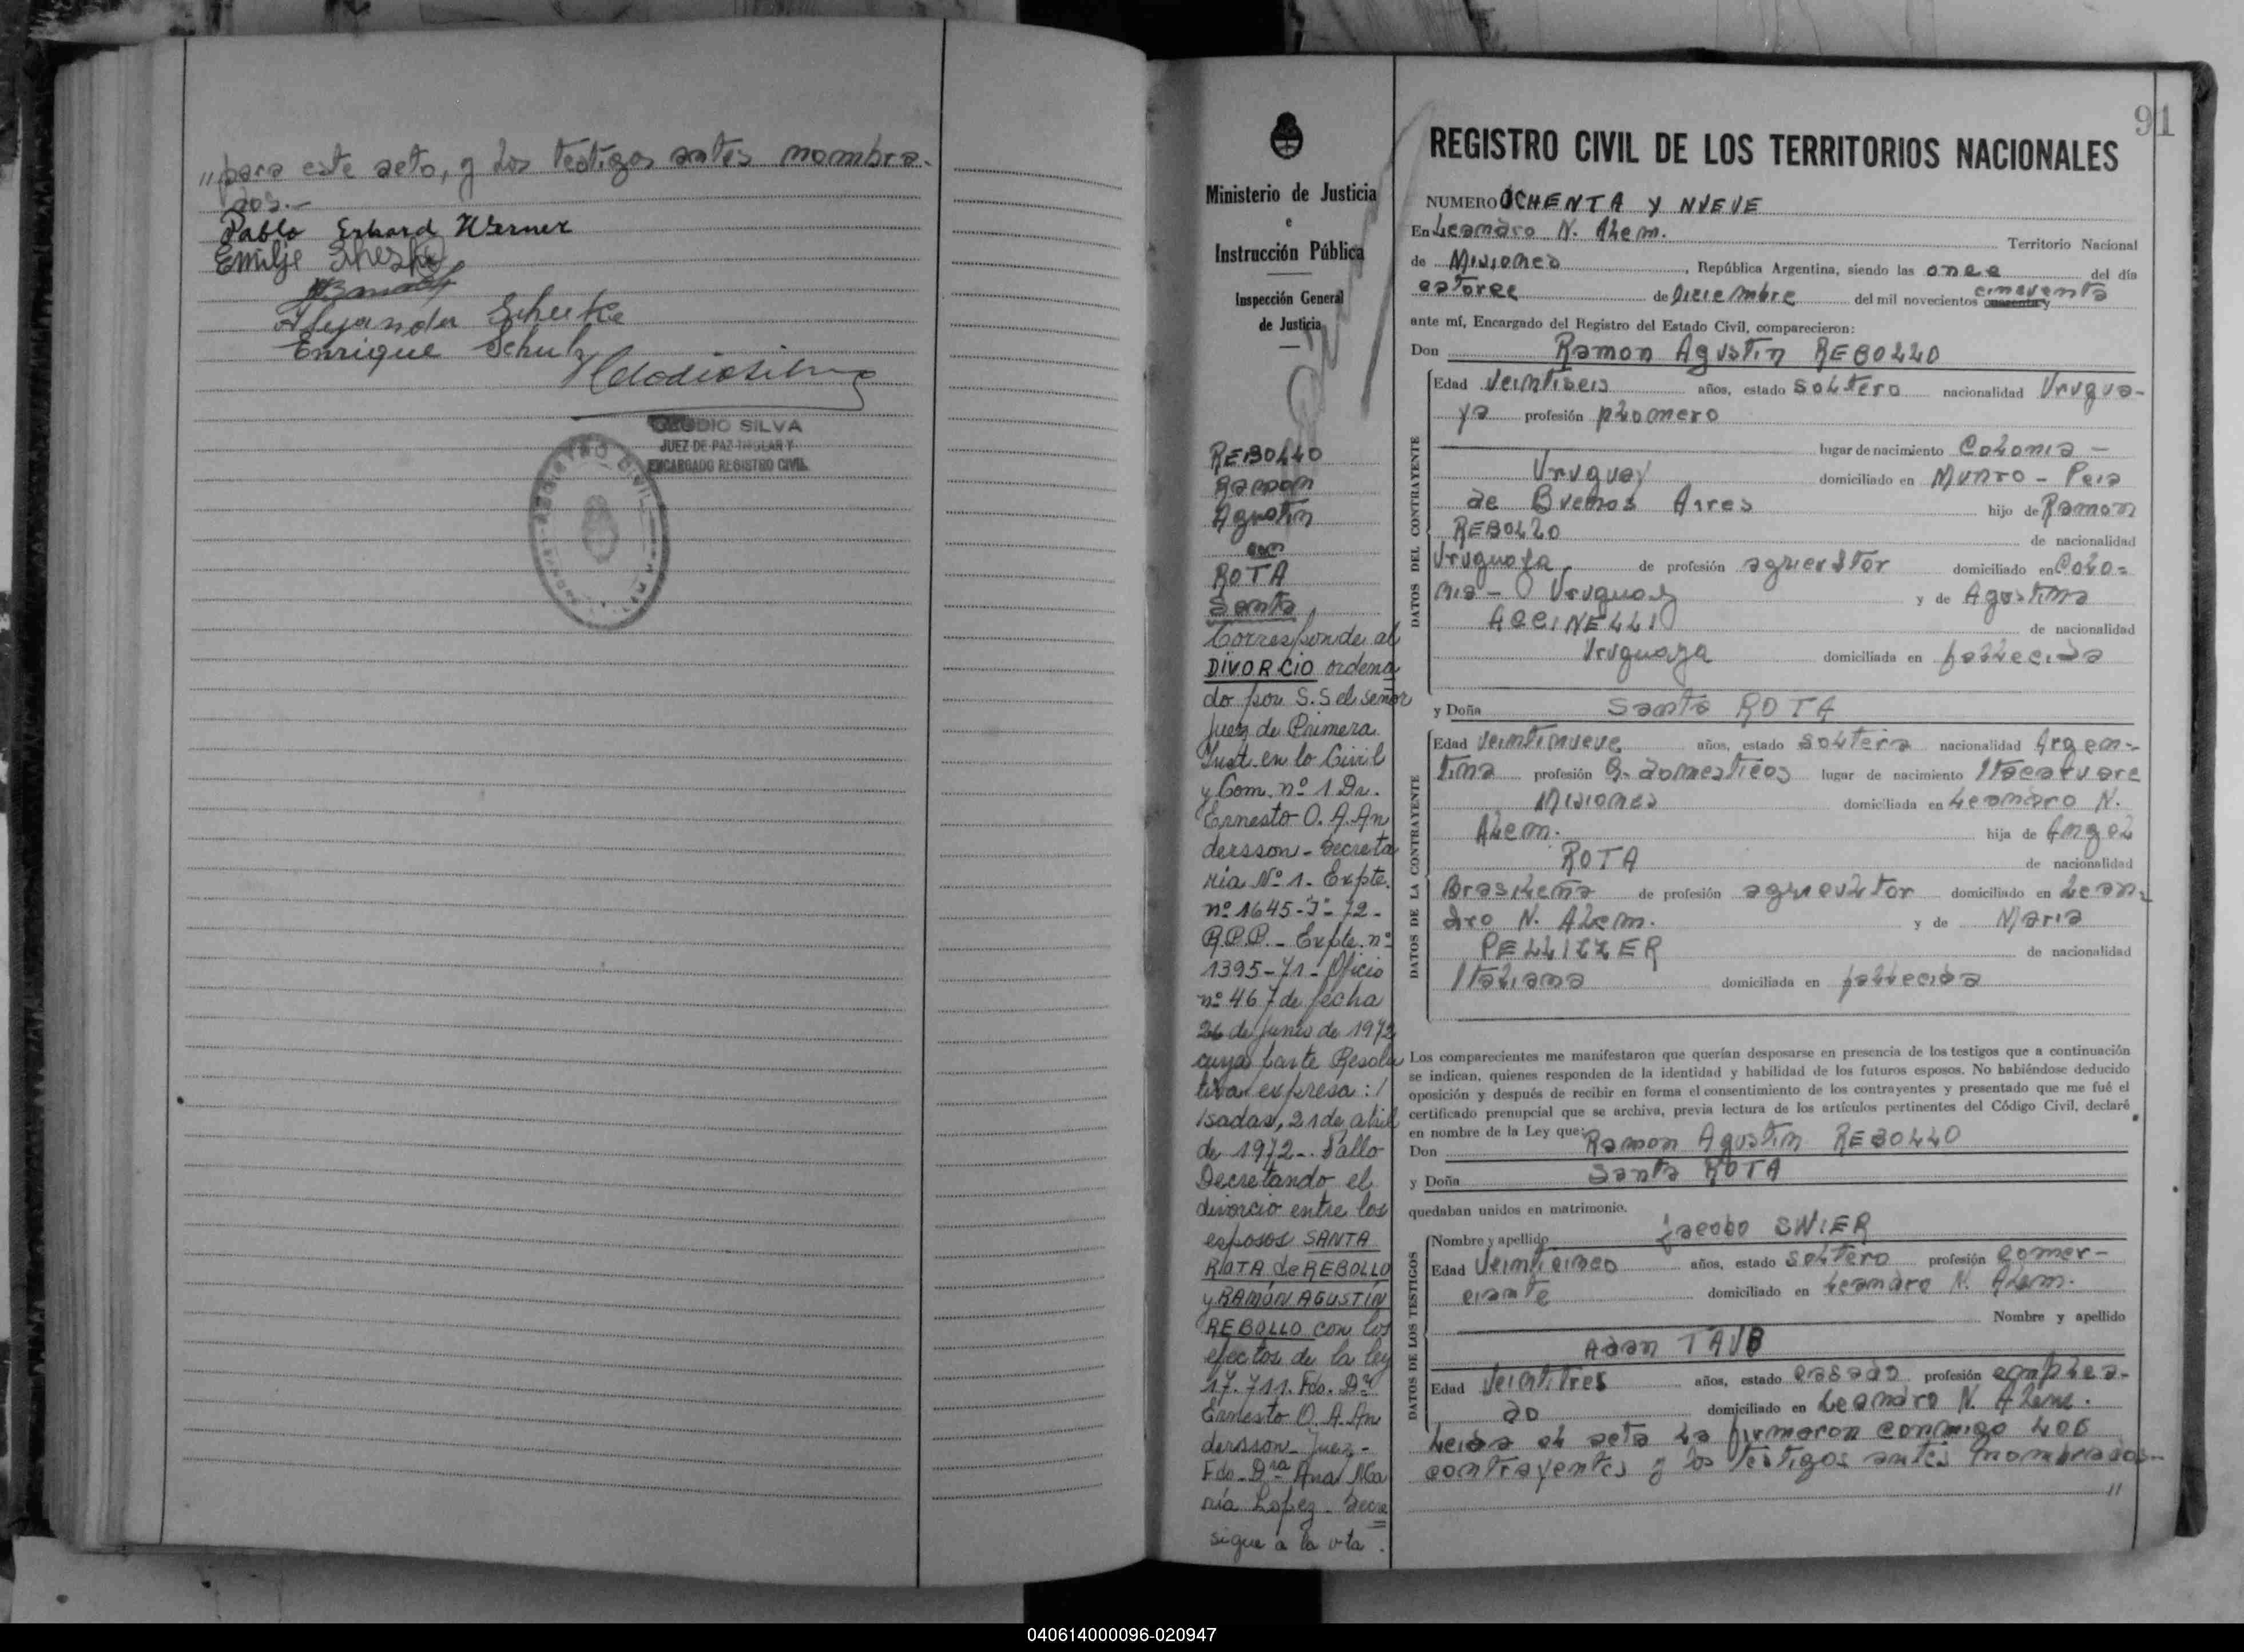 "para este acto, y los testigos antes nombra-
dos.-
Pablo Erhard Werner
Emilje
Alejandro Scheske
Enrique Schulz
CLAUDIO SILVA
JUEZ DE PAZ TITULAR Y
ENCARGADO REGISTRO CIVIL
REGISTRO CIVIL
91
Ministerio de Justicia
e
Instrucción Pública
Inspección General
de Justicia
REBOLLO
Ramon
Agustin
con
ROTA
Santa
Corresponde al
DIVORCIO ordena
do por S.S el señor
Juez de Primera
Inst. en lo Civil
y Com. nº 1 Dr.
Ernesto O. A. An
dersson - Secreta
ria Nº 1. Expte.
nº 1645-"J"-72-
R.P.P. - Expte. nº
1395-71- Oficio
nº 467 de fecha
26 de junio de 1972
cuya parte Resolu
tiva expresa: /
/sadas, 21 de abril
de 1972-. Fallo
Decretando el
divorcio entre los
esposos SANTA
ROTA de REBOLLO
y RAMÓN AGUSTIN
REBOLLO con los
efectos de la ley
17.711. Fdo. Dr.
Ernesto O. A. An
dersson - Juez -
Fdo. Dra Ana Ma
ría Lopez - Secre
sigue a la vta.
REGISTRO CIVIL DE LOS TERRITORIOS NACIONALES
NUMERO OCHENTA Y NUEVE
En Leandro N. Alem. Territorio Nacional
de Misiones, República Argentina, siendo las once del día
catorce de Diciembre del mil novecientos cuarenta y cincuenta
ante mí, Encargado del Registro del Estado Civil, comparecieron:
Don Ramon Agustin REBOLLO
DATOS DEL CONTRAYENTE
Edad veintiseis años, estado soltero nacionalidad Urugua-
ya profesión plomero
lugar de nacimiento Colonia -
Uruguay domiciliado en Munro - Pcia
de Buenos Aires hijo de Ramon
REBOLLO de nacionalidad
Uruguaya, de profesión agricultor domiciliado en Colo=
nia - Uruguay y de Agustina
ACCINELLI de nacionalidad
Uruguaya domiciliada en fallecida
y Doña Santa ROTA
DATOS DE LA CONTRAYENTE
Edad veintinueve años, estado soltera nacionalidad Argen-
tina profesión Q. domesticos lugar de nacimiento Itacaruare
Misiones domiciliada en Leandro N.
Alem. hija de Angel
ROTA de nacionalidad
Brasileña de profesión agricultor domiciliado en Lean=
dro N. Alem. y de Maria
PELLIZZER de nacionalidad
Italiana domiciliada en fallecida
Los comparecientes me manifestaron que querían desposarse en presencia de los testigos que a continuación
se indican, quienes responden de la identidad y habilidad de los futuros esposos. No habiéndose deducido
oposición y después de recibir en forma el consentimiento de los contrayentes y presentado que me fué el
certificado prenupcial que se archiva, previa lectura de los artículos pertinentes del Código Civil, declaré
en nombre de la Ley que:
Don Ramon Agustin REBOLLO
y Doña Santa ROTA
quedaban unidos en matrimonio.
DATOS DE LOS TESTIGOS
Nombre y apellido Jacobo SWIER
Edad Veinticinco años, estado soltero profesión comer-
ciante domiciliado en Leandro N. Alem.
Nombre y apellido
Adan TAUB
Edad Veintitres años, estado casado profesión emplea-
do domiciliado en Leandro N. Alem.
Leida el acta la firmaron conmigo los
contrayentes y los testigos antes nombrados-
"
040614000096-020947